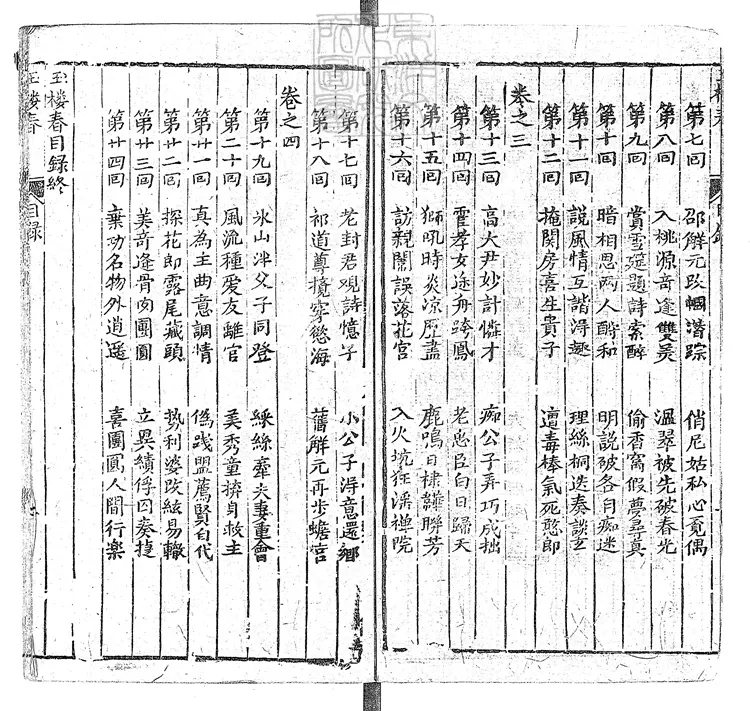 第七回　邵解元改幗潛踪　俏尼姑私心覓偶
第八回　入桃源奇逢雙美　溫翠被先破春光
第九回　賞雪筵題詩索醉　偷香窩假夢尋真
第十回　暗相思兩人酧和　明說破各自痴迷
第十一回　說風情互諧得趣　理絲桐迭奏談玄
第十二回　掩関房喜生貴子　遭毒棒氣死憨郎
卷之三
第十三回　高大尹妙計憐才　痴公子弄巧成拙
第十四回　霍孝女逃舟跨鳳　老忠臣白日歸天
第十五回　獅吼時炎凉歷盡　鹿鳴日棣蕚聯芳
第十六回　訪親闈誤落花宮　入火坑狂淫禪院
第十七回　老封君观詩憶子　小公子得意還鄉
第十八回　祁道尊撓穿慾海　舊解元再步蟾宮
卷之四
第十九回　氷山泮父子同登　綵絲牽夫妻重會
第二十回　風流種爱友離官　美秀童擠身救主
第廿一回　真為主曲意調情　偽践盟薦賢自代
第廿二回　探花郎露尾藏頭　势利婆改絃易轍
第廿三回　美奇逢骨肉團圓　立異績俘囚奏捷
第廿四回　棄功名物外逍遥　喜團圓人間行楽
玉楼春目録終
玉楼春　目録